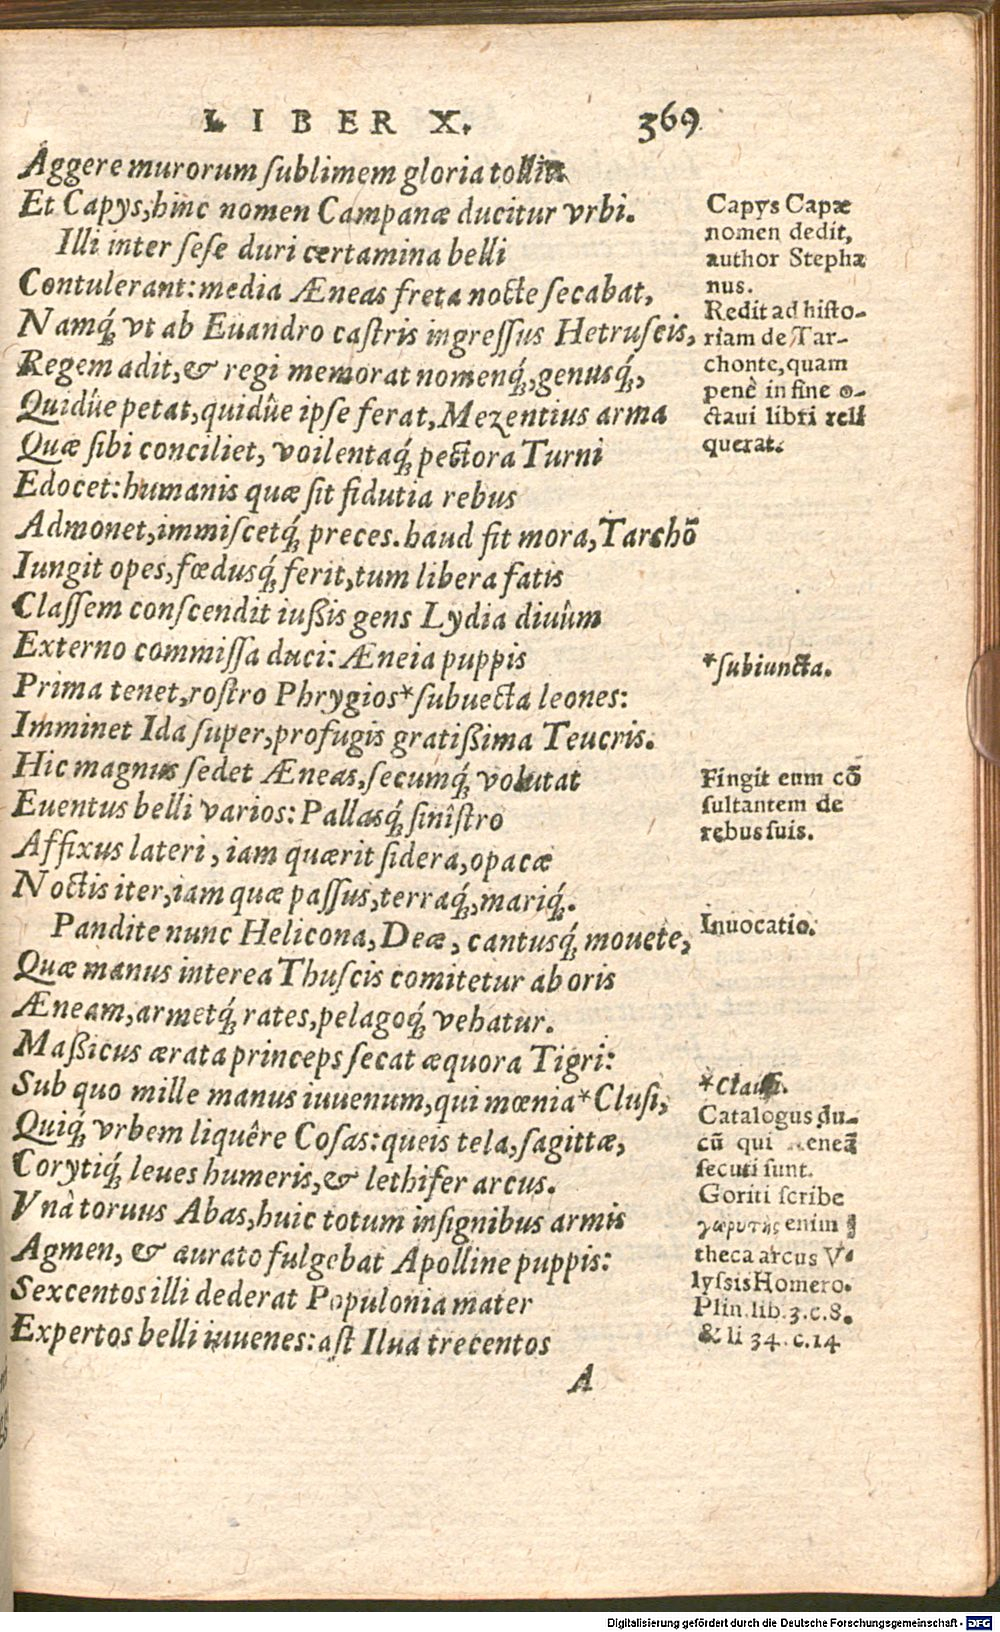 LIBER X. 369
Aggere murorum ſublimem gloria tollit
Et Capys, hinc nomen Campanæ ducitur vrbi.
Illi inter ſeſe duri certamina belli
Contulerant: media Æneas freta nocte ſecabat,
Namq́ꝫ vt ab Euandro caſtris ingreſſus Hetruſcis,
Regem adit, & regi memorat nomenq́ꝫ, genusq́ꝫ,
Quidûe petat, quidûe ipſe ferat, Mezentius arma
Quæ ſibi conciliet, voilentaq́ꝫ pectora Turni
Edocet: humanis quæ ſit fidutia rebus
Admonet, immiſcetq́ꝫ preces. haud fit mora, Tarchō
Iungit opes, fœdusq́ꝫ ferit, tum libera fatis
Claſſem conſcendit iußis gens Lydia diuûm
Externo commiſſa duci: Æneia puppis
Prima tenet, roſtro Phrygios* ſubuecta leones:
Imminet Ida ſuper, profugis gratißima Teucris.
Hic magnus ſedet Æneas, ſecumq́ꝫ volutat
Euentus belli varios: Pallasq́ꝫ ſiniſtro
Affixus lateri, iam quærit ſidera, opacæ
Noctis iter, iam quæ paſſus, terraq́ꝫ, mariq́ꝫ.
Pandite nunc Helicona, Deæ, cantusq́ꝫ mouete,
Quæ manus interea Thuſcis comitetur ab oris
Æneam, armetq́ꝫ rates, pelagoq́ꝫ vehatur.
Maßicus ærata princeps ſecat æquora Tigri:
Sub quo mille manus iuuenum, qui mœnia* Cluſi,
Quiq́ꝫ vrbem liquêre Coſas: queis tela, ſagittæ,
Corytiq́ꝫ leues humeris, & lethifer arcus.
Vnà toruus Abas, huic totum inſignibus armis
Agmen, & aurato fulgebat Apolline puppis:
Sexcentos illi dederat Populonia mater
Expertos belli iuuenes: aſt Ilua trecentos
A
Capys Capæ
nomen dedit,
author Stepha
nus.
Redit ad hiſto-
riam de Tar-
chonte, quam
penè in fine o-
ctaui libri reli
querat.
*ſubiuncta.
Fingit eum cō
ſultantem de
rebus ſuis.
Inuocatio.
*Cłauſi.
Catalogus du-
cū qui Æneā
ſecuti ſunt.
Goriti ſcribe
γωρυτὴς enim
theca arcus V-
lyſsis Homero.
Plin. lib. 3. c. 8.
& li 34. c. 14
Digitalisierung gefördert durch die Deutsche Forschungsgemeinschaft - DFG